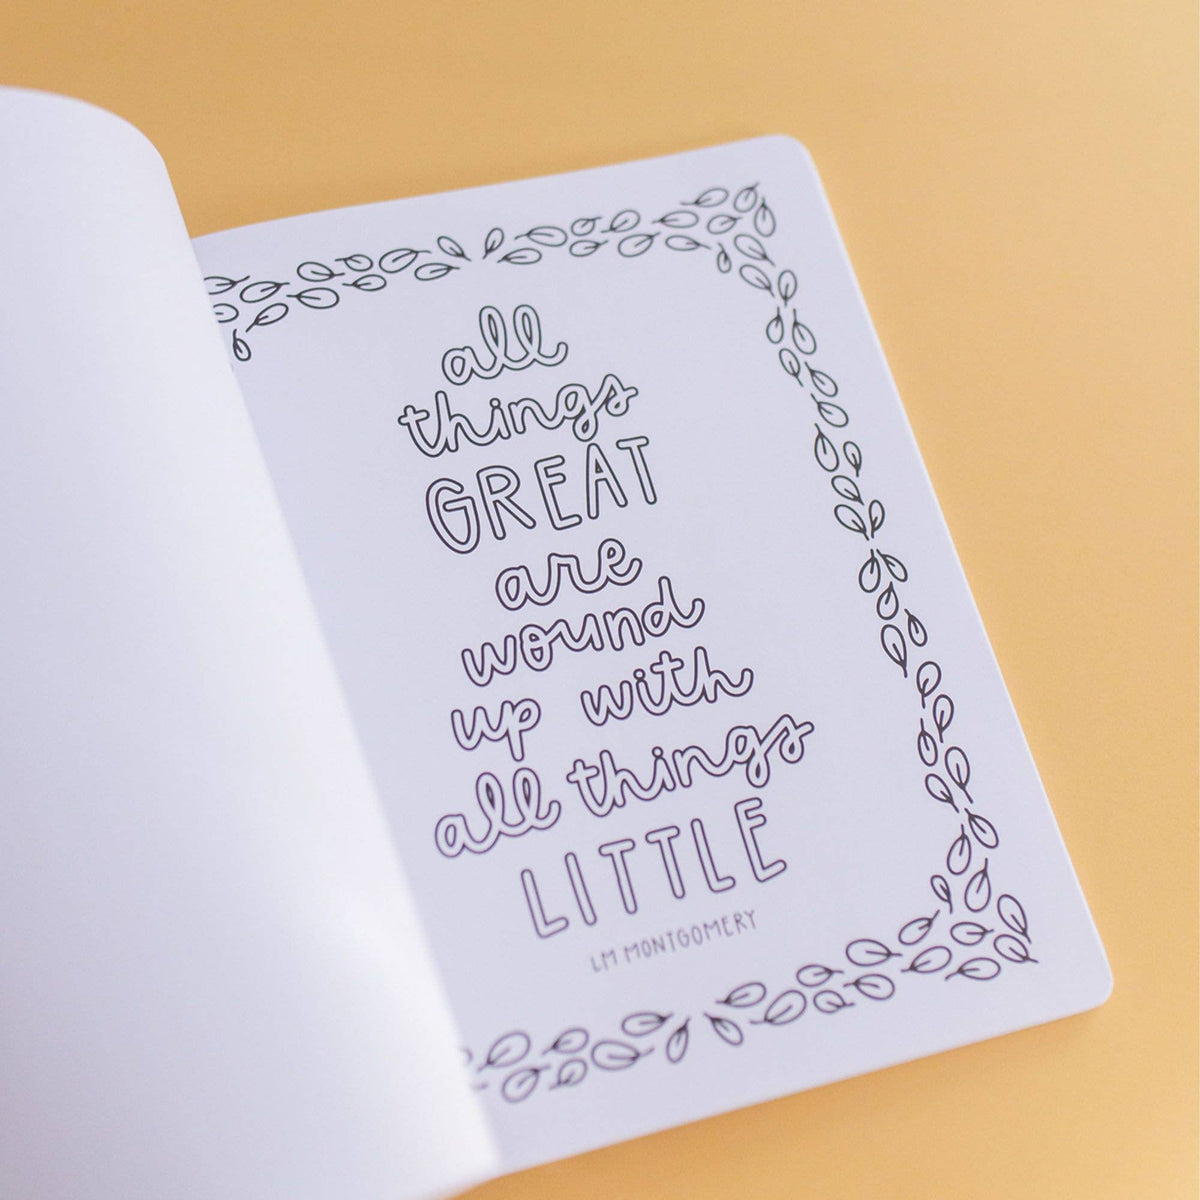 all
things
GREAT
are
wound
up with
all things
LITTLE
LM MONTGOMERY